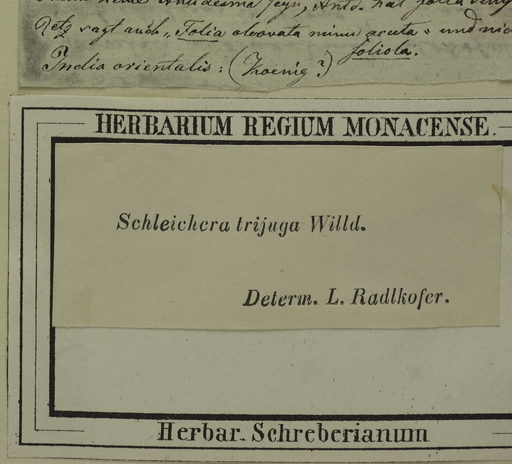 Retz sagt auch „Folia obovata minus acuta" und
foliola.
India orientalis: (Koenig?)
HERBARIUM REGIUM MONACENSE.
Schleichera trijuga Willd.
Determ. L. Radlkofer.
Herbar. Schreberianum